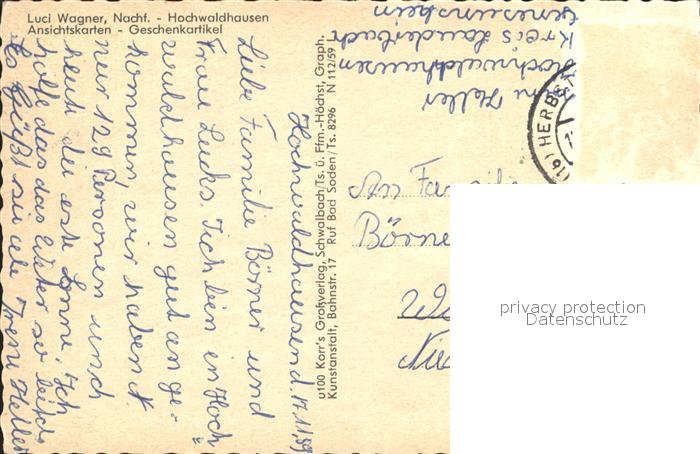 Luci Wagner, Nachf. - Hochwaldhausen
Ansichtskarten - Geschenkartikel
Hochwaldhausen d. 17.11.59
Liebe Familie Börner und
Frau Lucks. Ich bin in Hoch=
waldhausen gut ange-
kommen, wir haben
nur 129 Personen und
heute die erste Sonne. Ich
hoffe das das Wetter so bleibt
Es Grüßt sie alle Irene Heller
u100 Korr's Großverlag, Schwalbach/Ts. ü. Ffm.-Höchst, Graph.
Kunstanstalt, Bahnstr. 17 Ruf Bad Soden/Ts. 8296 N 112/59
Heller
Hochwaldhausen
Kreis Lauterbach
Genesungsheim
(16) HERBST
An Familie
Börne
privacy protection
Datenschutz